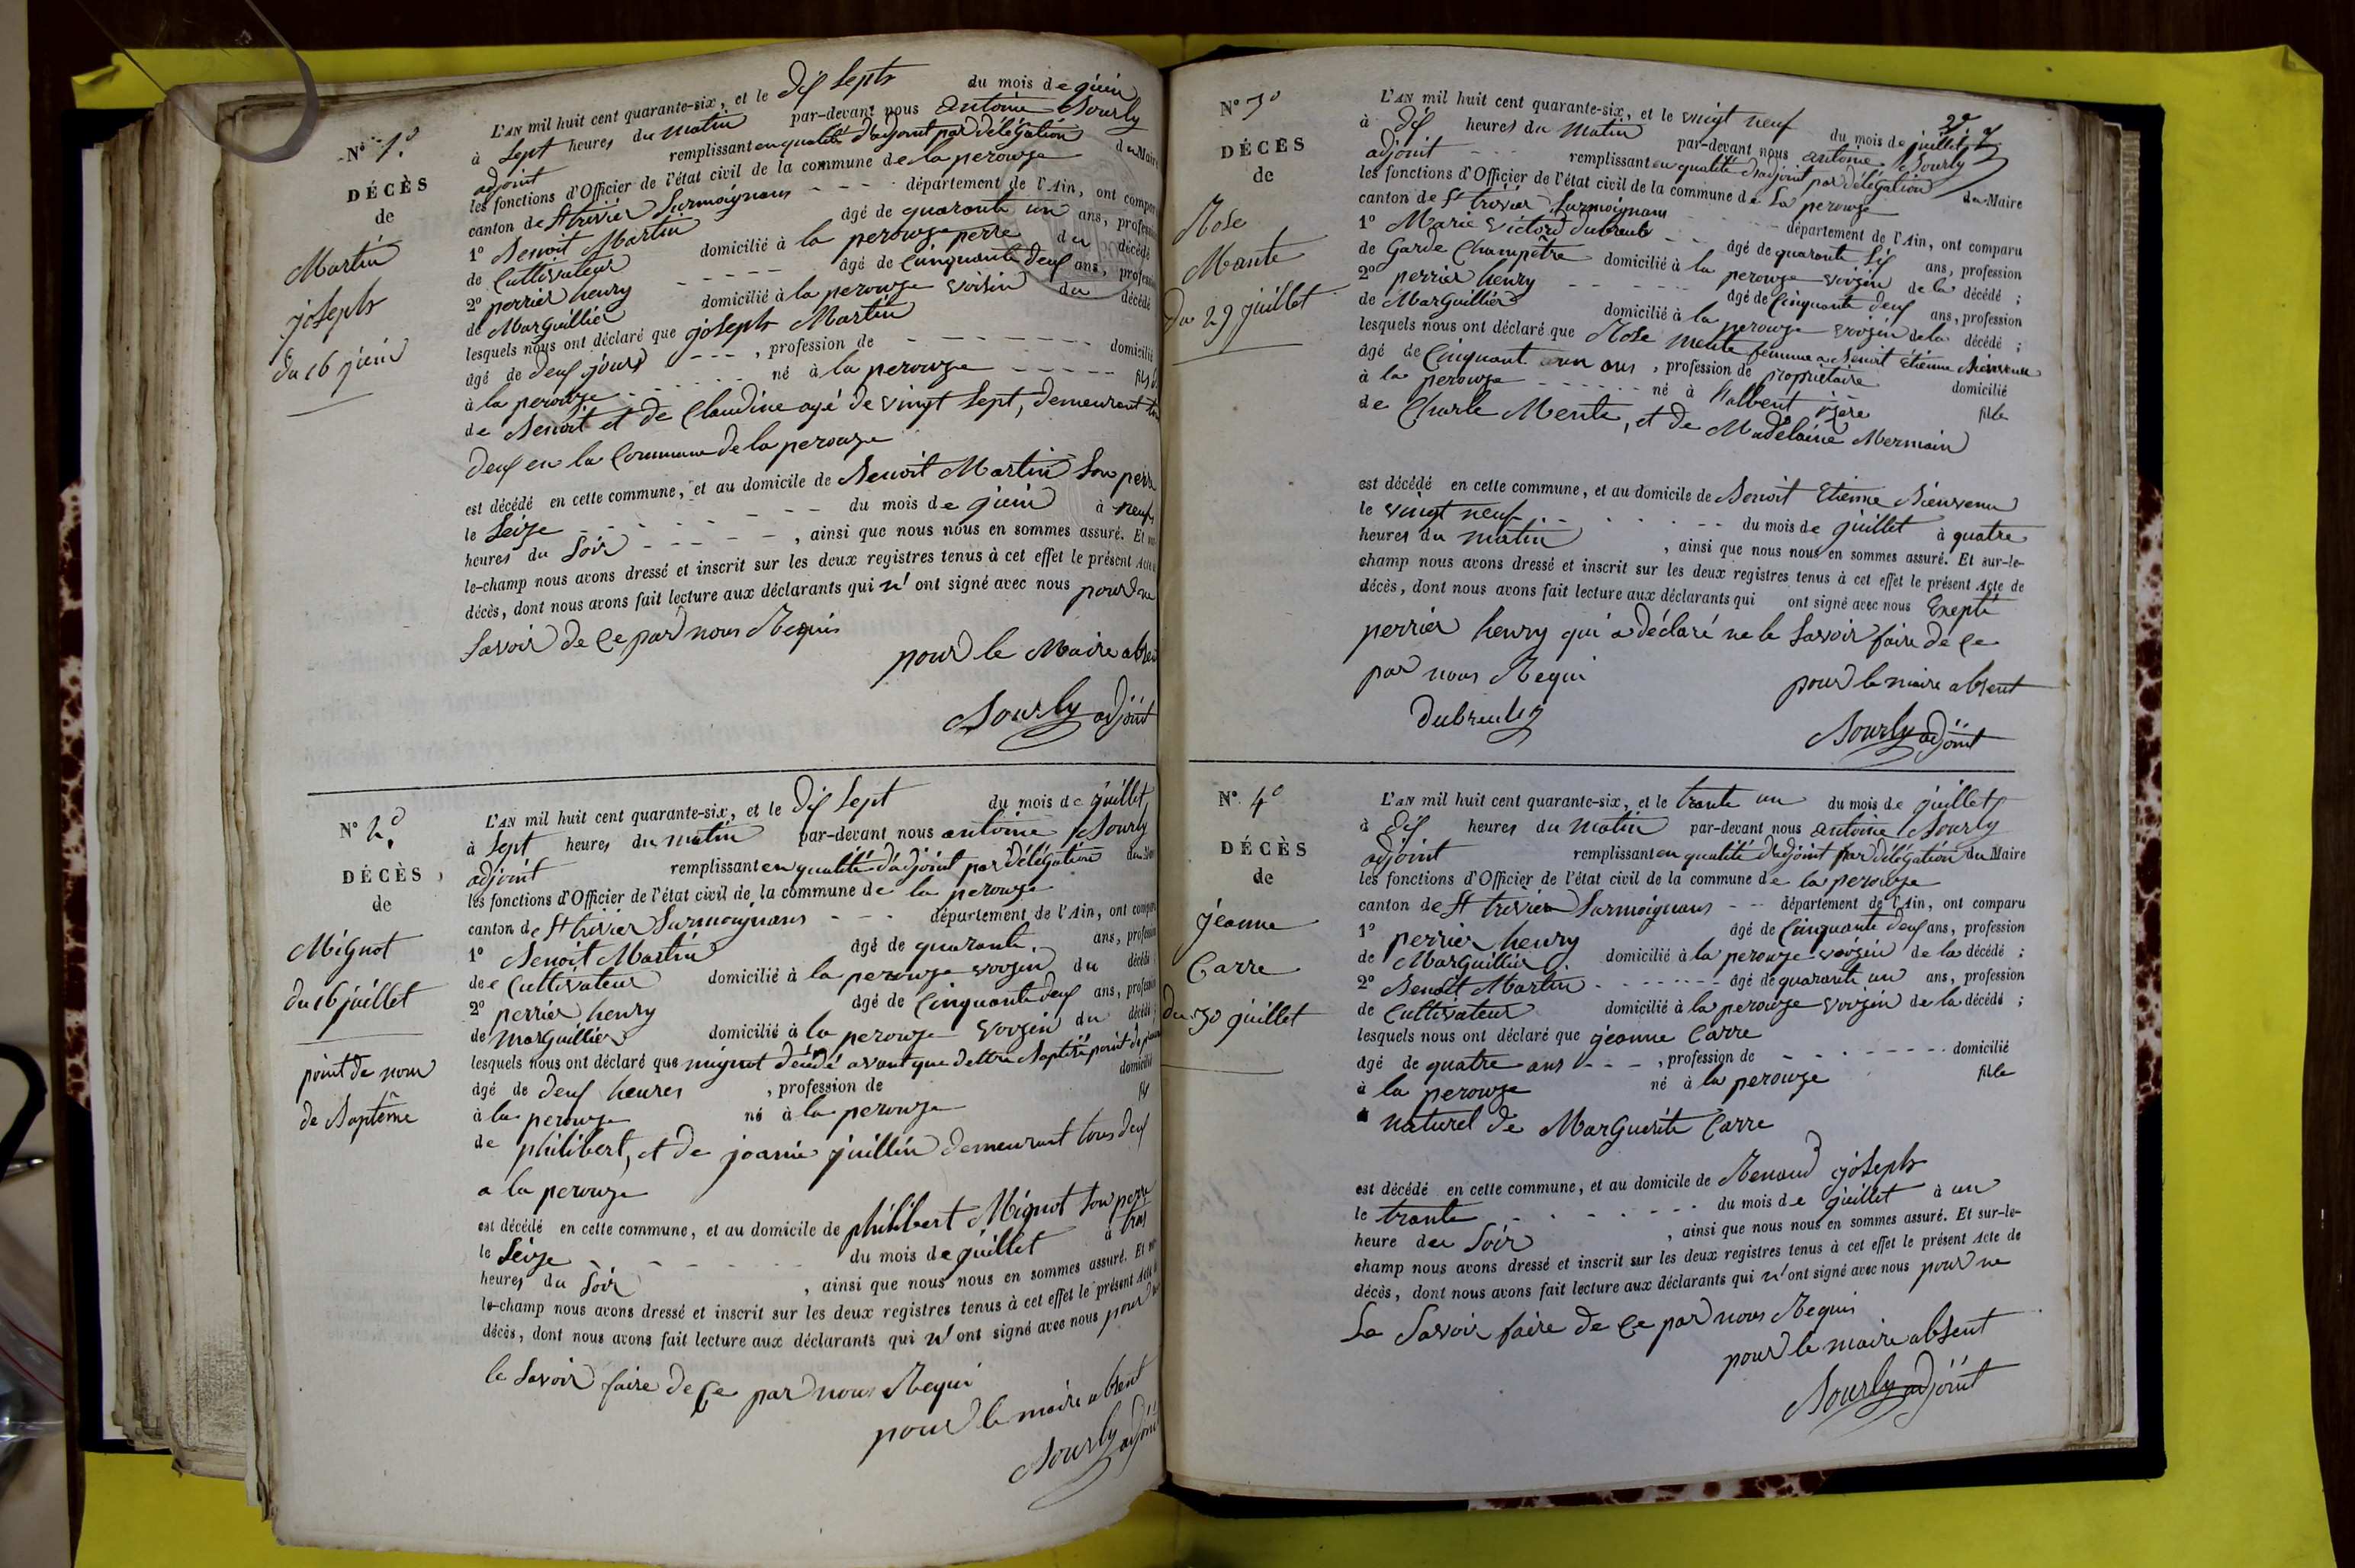 N° 1.°
DÉCÈS
de
Martin
joseph
du 16 juin
L'AN mil huit cent quarante-six, et le dix septs du mois de juin
à sept heures du matin par-devant nous antoine Bourly
adjoint remplissant en qualité d'adjoint par délégation du Maire
les fonctions d'Officier de l'état civil de la commune de la perouze
canton de St trivier Surmoignans - - - département de l'Ain, ont compar
1° Benoit Martin âgé de quarante un ans, profession
de Cultivateur domicilié à la perouze perre du décédé
2° perrier henry - - - - âgé de Cinquante deux ans, profession
de Marguillier domicilié à la perouze voisin du décédé
lesquels nous ont déclaré que joseph Martin
âgé de deux jours - - - , profession de - - - - - - domicilié
à la perouze - - - - - né à la perouze - - - - - fils
de Benoit et de Claudine agé de vingt Sept, demeurant
deux en la Commune de la perouze
est décédé en cette commune, et au domicile de Benoit Martin Son perre
le Seize - - - - - - - - du mois de juin à neuf
heures du Soir - - - - - , ainsi que nous nous en sommes assuré. Et
le-champ nous avons dressé et inscrit sur les deux registres tenus à cet effet le présent Acte
décès, dont nous avons fait lecture aux déclarants qui n' ont signé avec nous pour ne
Savoir de Ce par nous Requis
pour le Maire absent
Bourly adjoint
N° 2.°
DÉCÈS
de
Mignot
du 16 juillet
point de nom
de Baptême
L'AN mil huit cent quarante-six, et le dix Sept du mois de juillet
à Sept heures du matin par-devant nous antoine Bourly
adjoint remplissant en qualité d'adjoint par délégation du Maire
les fonctions d'Officier de l'état civil de la commune de la perouze
canton de St trivier Surmoignans - - - département de l'Ain, ont compar
1° Benoit Martin âgé de quarante ans, profession
de Cultivateur domicilié à la perouze voozin du décédé
2° perrier henry âgé de Cinquante deux ans, profession
de Marguillier domicilié à la perouze voozin du décédé
lesquels nous ont déclaré que mignot décédé avant que dettre Baptisé point de
âgé de deux heures , profession de domicilié
à la perouze né à la perouze fils
de philibert, et de joanie juillin demeurant tous deux
a la perouze
est décédé en cette commune, et au domicile de philibert Mignot Son perre
le Seize - - - - - - du mois de juillet à trois
heures du Soir , ainsi que nous nous en sommes assuré. Et
le-champ nous avons dressé et inscrit sur les deux registres tenus à cet effet le présent Acte
décès, dont nous avons fait lecture aux déclarants qui n' ont signé avec nous pour ne
le Savoir faire de Ce par nous Requi
pour le maire absent
Bourly adjoint
2e
N° 3°
DÉCÈS
de
Rose
Mante
du 29 juillet
L'AN mil huit cent quarante-six, et le vingt neuf du mois de juillet
à dix heures du Matin par-devant nous antoine Bourly
adjoint - - - remplissant en qualité d'adjoint par délégation du Maire
les fonctions d'Officier de l'état civil de la commune de La perouze
canton de St trivier Surmoignans - - - département de l'Ain, ont comparu
1° Marie Victord dubreule - - âgé de quarante Six ans, profession
de Garde Champêtre domicilié à la perouze voozin de la décédé ;
2° perrier henry - - - - - - âgé de Cinquante deux ans, profession
de Marguillier domicilié à la perouze voozin de la décédé ;
lesquels nous ont déclaré que Rose Mente femme a Benoit Etienne Bienvenu
âgé de Cinquant un ans , profession de propriétaire domicilié
à la perouze - - - - - - né à isère fille
de Charle Mente, et de Madelaine Mermain
est décédé en cette commune, et au domicile de Benoit Etienne Bienvenu
le vingt neuf - - - - - - - du mois de juillet à quatre
heures du matin , ainsi que nous nous en sommes assuré. Et sur-le-
champ nous avons dressé et inscrit sur les deux registres tenus à cet effet le présent Acte de
décès, dont nous avons fait lecture aux déclarants qui ont signé avec nous Exepté
perrier henry qui a déclaré ne le Savoir faire de Ce
par nous Requi
pour le maire absent
dubreule
Bourly adjoint
N° 4°
DÉCÈS
de
jeanne
Carre
du 30 juillet
L'AN mil huit cent quarante-six, et le trante un du mois de juillet
à dix heures du Matin par-devant nous antoine Bourly
adjoint remplissant en qualité d'adjoint par délégation du Maire
les fonctions d'Officier de l'état civil de la commune de la perouze
canton de St trivier Surmoignans - - département de l'Ain, ont comparu
1° perrier henry âgé de Cinquante deux ans, profession
de Marguillier domicilié à la perouze voozin de la décédé ;
2° Benoit Martin - - - - - - - âgé de quarante un ans, profession
de Cultivateur domicilié à la perouze voozin de la décédé ;
lesquels nous ont déclaré que jeanne Carre
âgé de quatre ans - - - , profession de - - - - - - - domicilié
à la perouze né à la perouze fille
naturel de Marguerite Carre
est décédé en cette commune, et au domicile de Renaud joseph
le trante - - - - - - - du mois de juillet à un
heure du Soir , ainsi que nous nous en sommes assuré. Et sur-le-
champ nous avons dressé et inscrit sur les deux registres tenus à cet effet le présent Acte de
décès, dont nous avons fait lecture aux déclarants qui n' ont signé avec nous pour ne
Le Savoir faire de Ce par nous Requis
pour le maire absent
Bourly adjoint